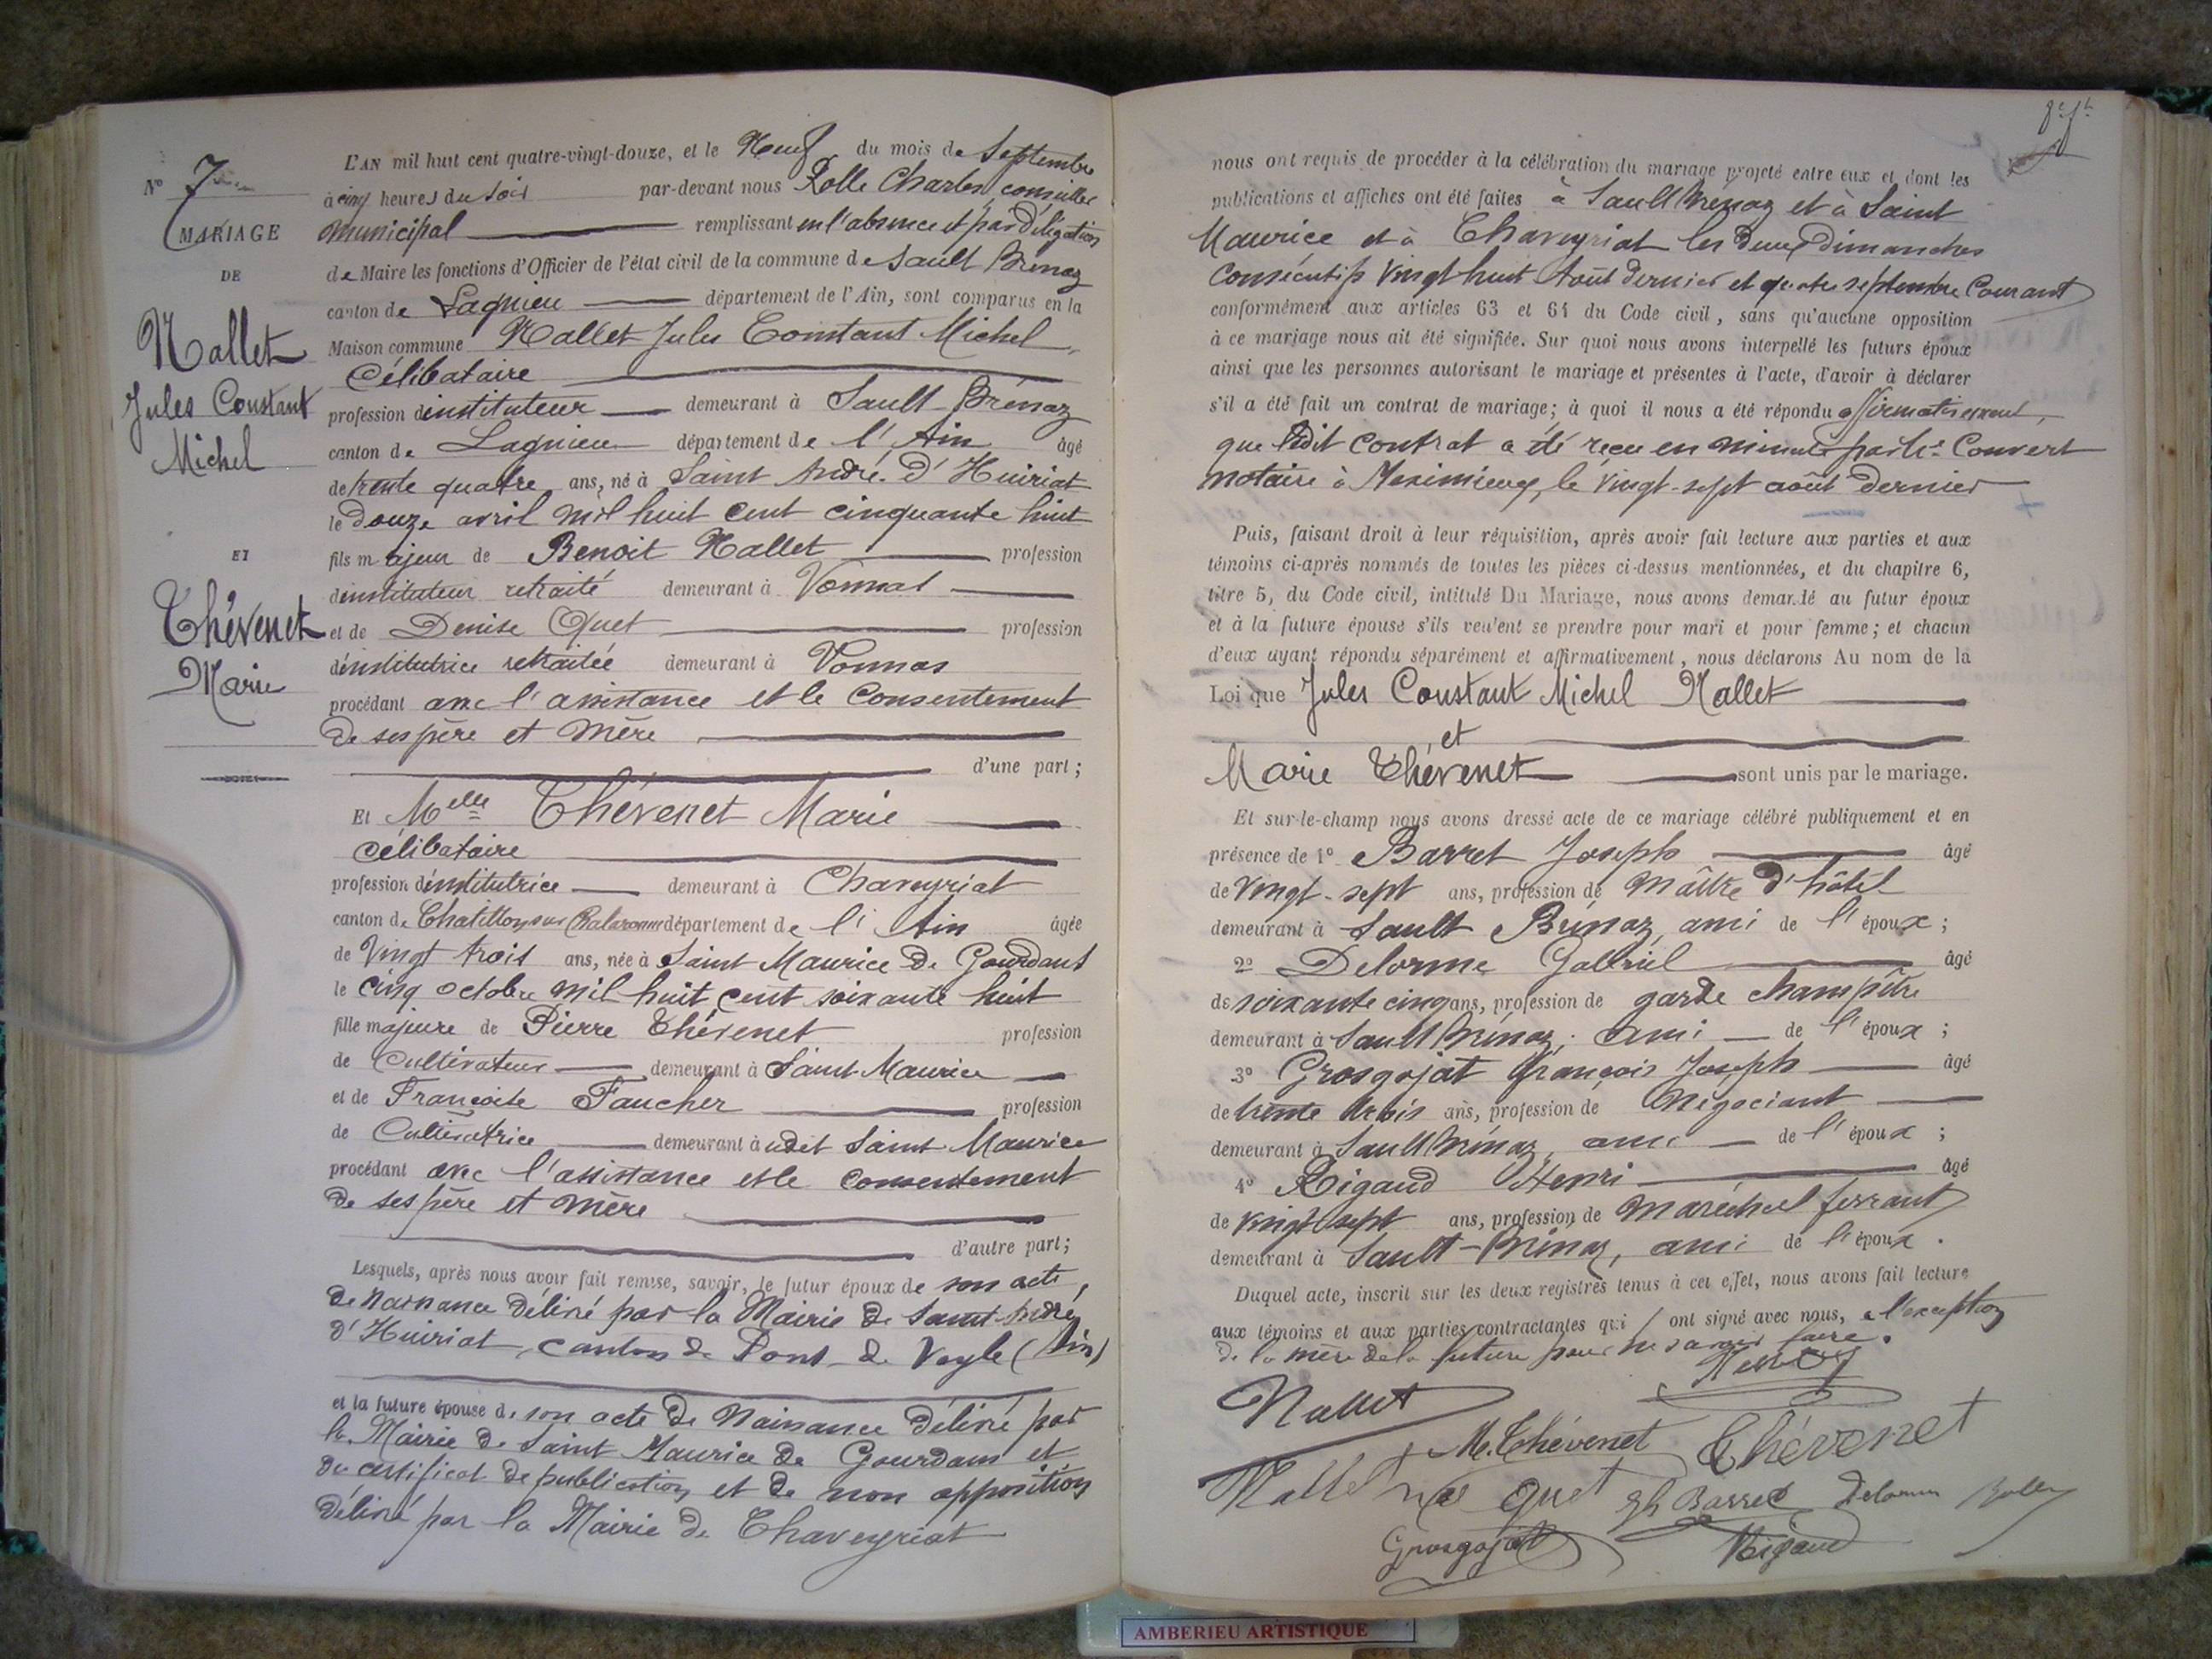 N° 7
MARIAGE
DE
Nallet
Jules Constant
Michel
ET
Thévenet
Marie
L'AN mil huit cent quatre-vingt-douze, et le Neuf du mois de Septembre
à cinq heures du soir par-devant nous Rolle Charles, conseiller
Municipal remplissant en l'absence et par délégation
de Maire les fonctions d'Officier de l'état civil de la commune de Sault Brénaz
canton de Lagnieu département de l'Ain, sont comparus en la
Maison commune Nallet Jules Constant Michel,
Célibataire
profession d'instituteur demeurant à Sault-Brénaz
canton de Lagnieu département de l'Ain âgé
de trente quatre ans, né à Saint André d'Huiriat
le douze avril mil huit cent cinquante huit
fils majeur de Benoit Nallet profession
d'instituteur retraité demeurant à Vonnas
et de Denise Quet profession
d'institutrice retraitée demeurant à Vonnas
procédant avec l'assistance et le Consentement
de ses père et mère
d'une part;
Et Melle Thévenet Marie
Célibataire
profession d'institutrice demeurant à Chaveyriat
canton de Chatillon sur Chalaronne département de l'Ain âgée
de Vingt trois ans, née à Saint Maurice de Gourdans
le cinq octobre mil huit cent soixante huit
fille majeure de Pierre Thévenet profession
de Cultivateur demeurant à Saint Maurice
et de Françoise Faucher profession
de Cultivatrice demeurant audit Saint Maurice
procédant avec l'assistance et le consentement
de ses père et mère
d'autre part;
Lesquels, après nous avoir fait remise, savoir, le futur époux de son acte
de naissance délivré par la Mairie de Saint André
d'Huiriat, canton de Pont-de-Veyle (Ain)
et la future épouse de son acte de Naissance délivré par
la Mairie de Saint Maurice de Gourdans et
du certificat de publication et de non opposition
délivré par la Mairie de Chaveyriat
nous ont requis de procéder à la célébration du mariage projeté entre eux et dont les
publications et affiches ont été faites à Sault Brénaz et à Saint
Maurice et à Chaveyriat les deux dimanches
consécutifs vingt huit Août dernier et quatre septembre Courant
conformément aux articles 63 et 64 du Code civil, sans qu'aucune opposition
à ce mariage nous ait été signifiée. Sur quoi nous avons interpellé les futurs époux
ainsi que les personnes autorisant le mariage et présentes à l'acte, d'avoir à déclarer
s'il a été fait un contrat de mariage; à quoi il nous a été répondu affirmativement,
que ledit contrat a été reçu en minute par Me Convert
notaire à Meximieux, le vingt-sept août dernier
Puis, faisant droit à leur réquisition, après avoir fait lecture aux parties et aux
témoins ci-après nommés de toutes les pièces ci-dessus mentionnées, et du chapitre 6,
titre 5, du Code civil, intitulé Du Mariage, nous avons demandé au futur époux
et à la future épouse s'ils veulent se prendre pour mari et pour femme; et chacun
d'eux ayant répondu séparément et affirmativement, nous déclarons Au nom de la
Loi que Jules Constant Michel Nallet
et
Marie Thévenet sont unis par le mariage.
Et sur-le-champ nous avons dressé acte de ce mariage célébré publiquement et en
présence de 1° Barret Joseph âgé
de vingt-sept ans, profession de Maître d'hôtel
demeurant à Sault Brénaz, ami de l'époux;
2° Delorme Gabriel âgé
de soixante cinq ans, profession de garde champêtre
demeurant à Sault Brénaz, ami de l'époux;
3° Grosgojat François Joseph âgé
de trente trois ans, profession de Négociant
demeurant à Sault Brénaz, ami de l'époux;
4° Rigaud Henri âgé
de vingt sept ans, profession de Maréchal ferrant
demeurant à Sault-Brénaz, ami de l'époux.
Duquel acte, inscrit sur les deux registres tenus à cet effet, nous avons fait lecture
aux témoins et aux parties contractantes qui ont signé avec nous, à l'exception
de la mère de la future pour ne savoir faire.
Nallet
M. Thévenet Thévenet
Nallet née Quet Jh Barret Delorme Rolle
Grosgojat Rigaud
AMBERIEU ARTISTIQUE